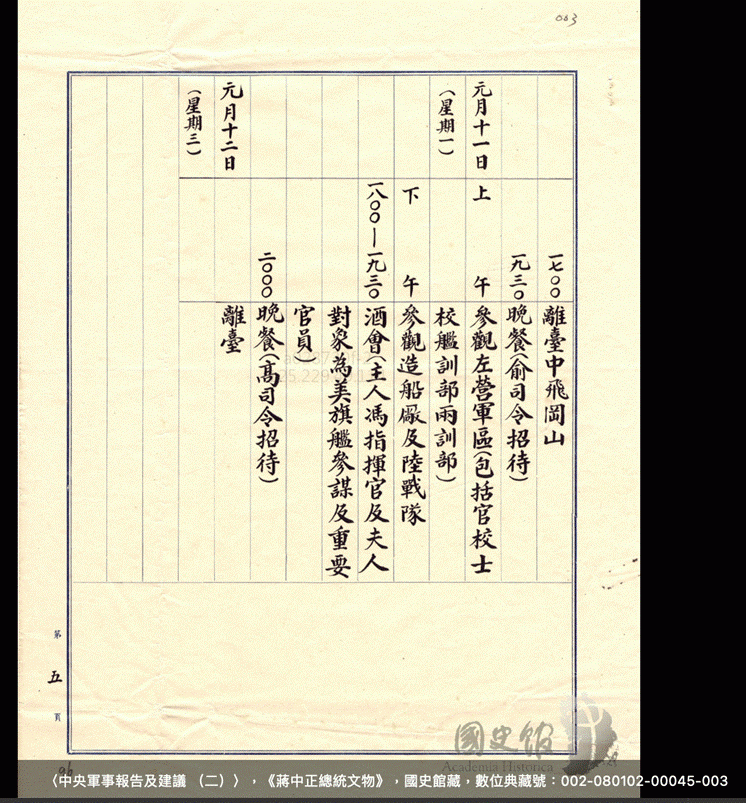 003
一七〇〇 離臺中飛岡山
一九三〇 晚餐(俞司令招待)
元月十一日 上 午 參觀左營軍區(包括官校士
(星期一) 校艦訓部兩訓部)
下 午 參觀造船廠及陸戰隊
一八〇〇—一九三〇 酒會(主人馮指揮官及夫人
對象為美旗艦參謀及重要
官員)
二〇〇〇 晚餐(高司令招待)
元月十二日 離臺
(星期三)
第 五 頁
國史館
Academia Historica
〈中央軍事報告及建議 （二）〉，《蔣中正總統文物》，國史館藏，數位典藏號：002-080102-00045-003